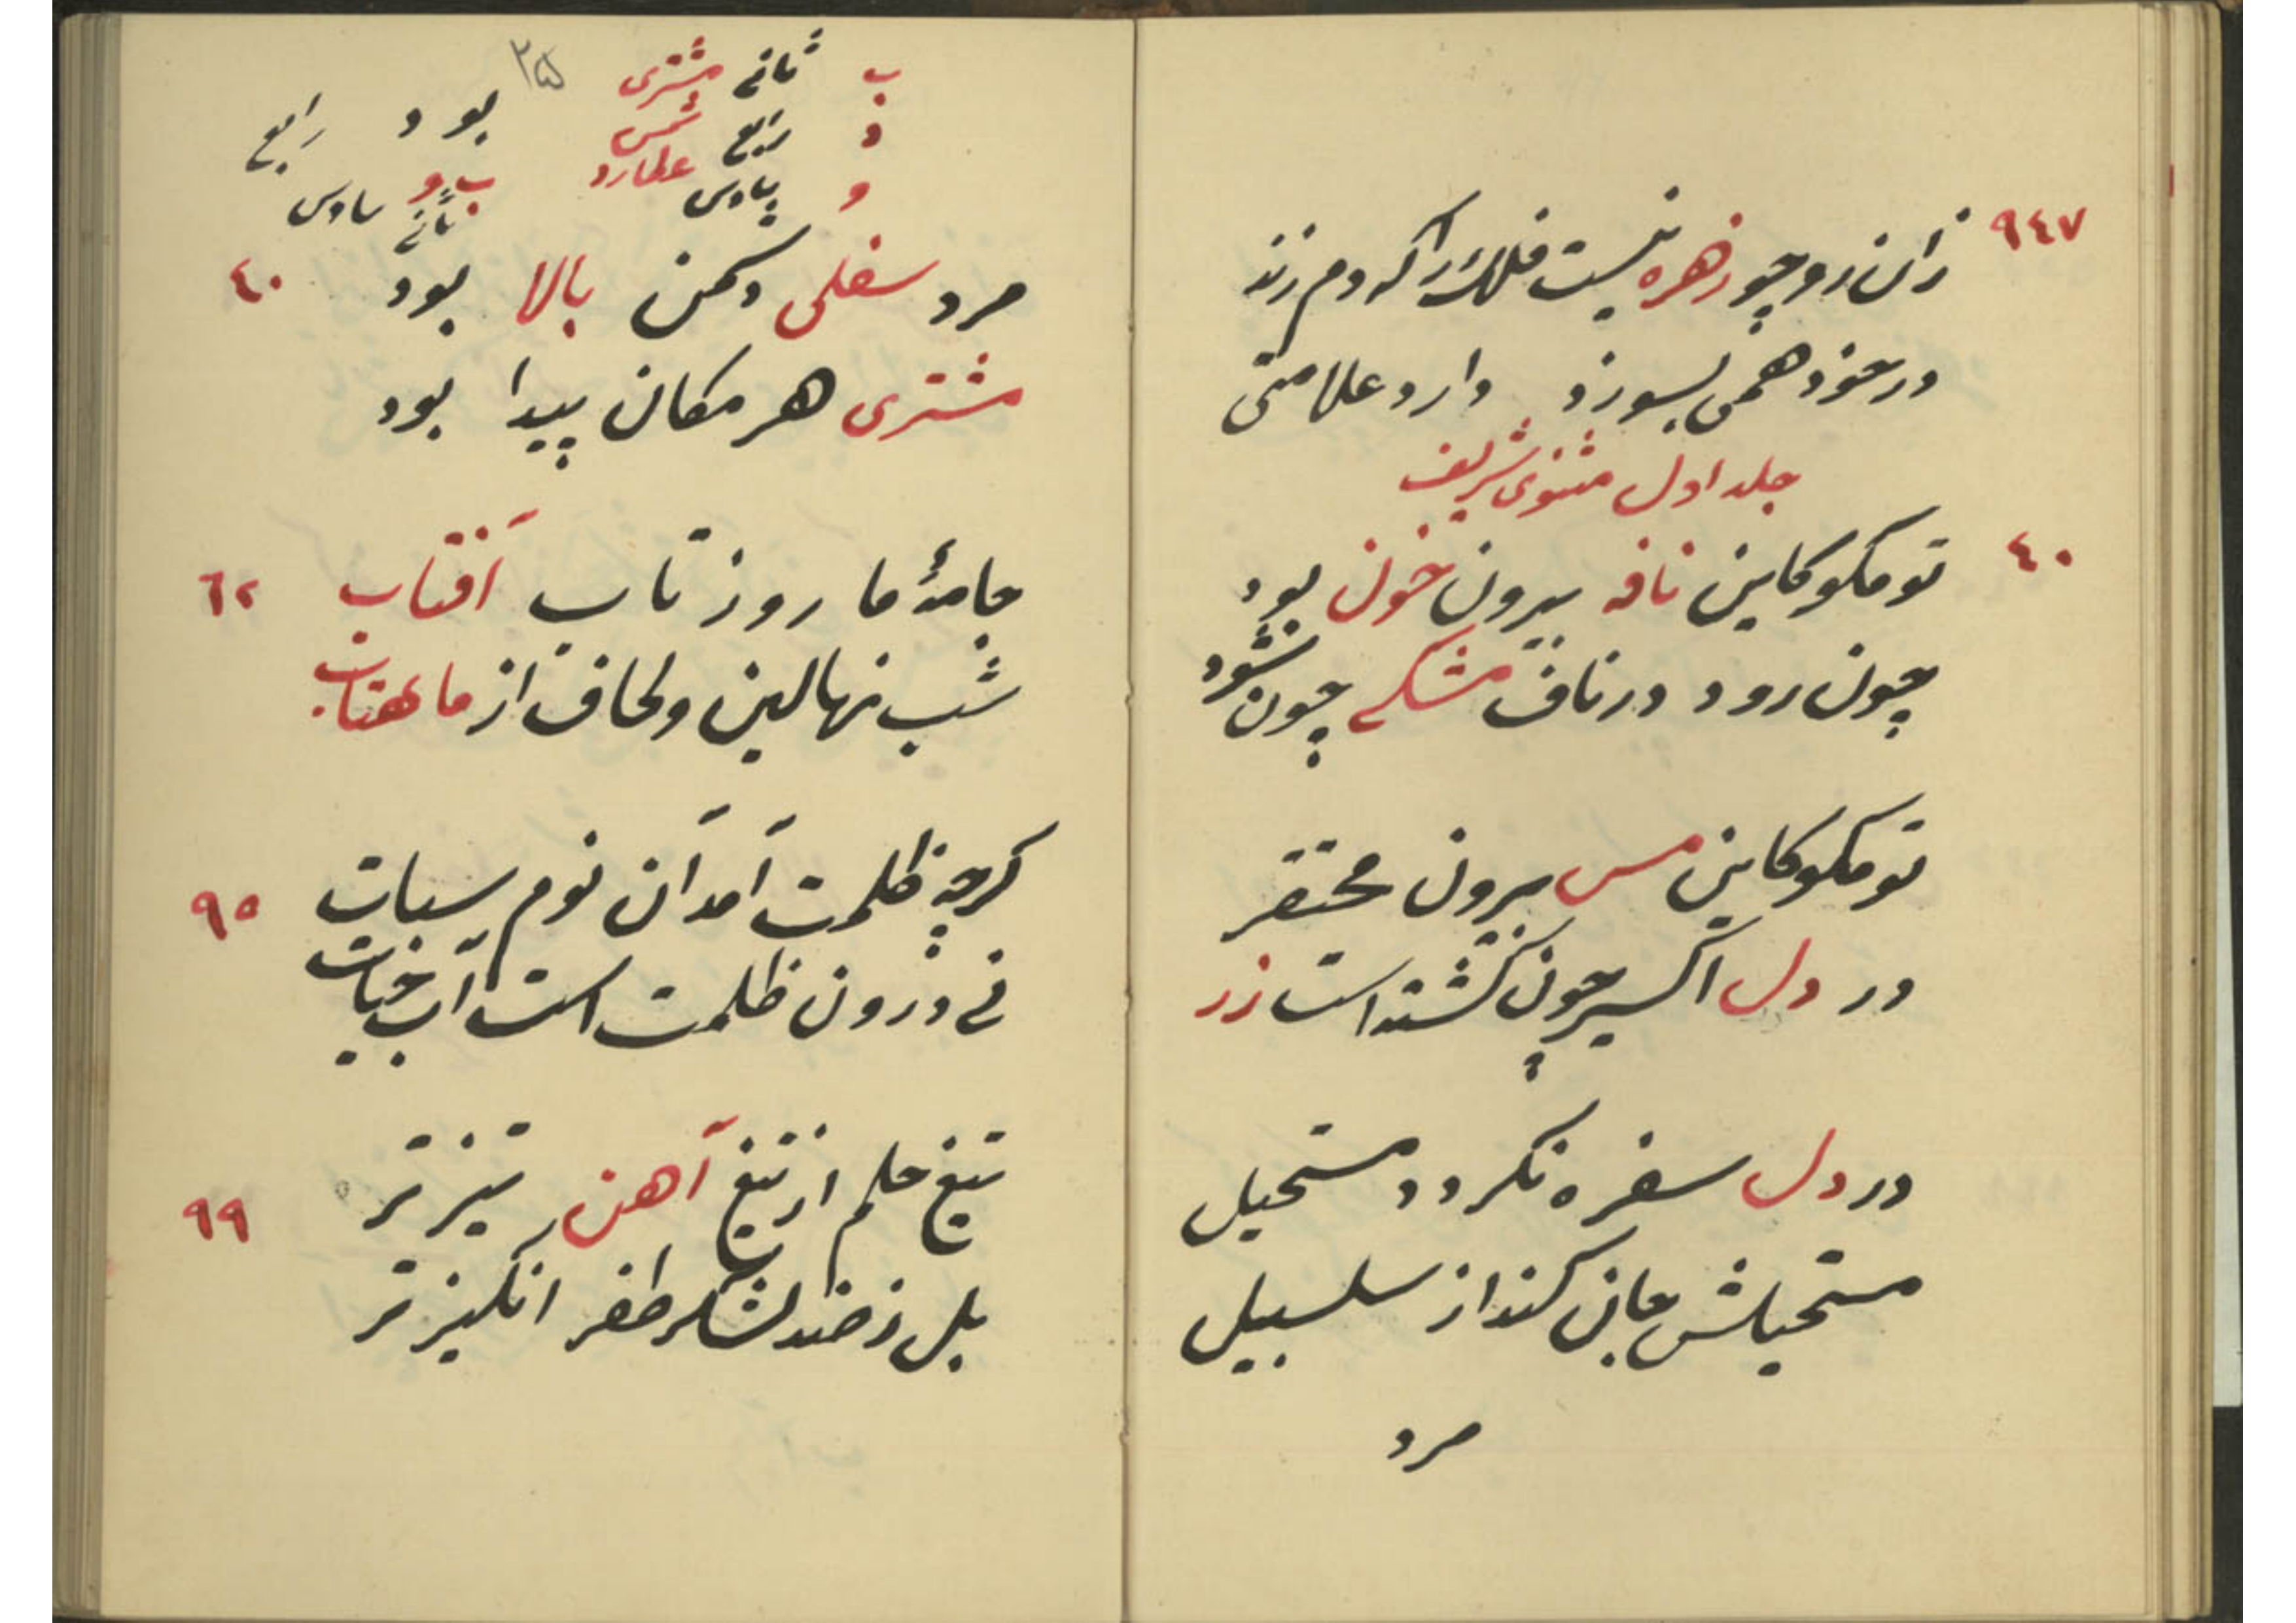 ٩٤٧ زان رو چو زهره نیست فلک را که دم زند
در عود همی بسوزد دارد علامتی
جلد اول مثنوی شریف
٤٠ تو مکو کاین نافه بیرون خون بود
چون رود در ناف مشکی چون شود
تو مکو کاین مس برون محتقر
در دل اکسیر چون کشته است زر
در دل سفره نکردد مستحیل
مستحیلش جان کند از سلسبیل
مرد
٢٥
ب ثانی مشتری بود رابع
د رابع شمس
و سادس عطارد ب و
ثانی سادس
مرد سفلی دشمن بالا بود ٤٠
مشتری هر مکان پیدا بود
جامهٔ ما روز تاب آفتاب ٦٢
شب نهالین و لحاف از ماهتاب
کرچه ظلمت آمد آن نوم سبات ٩٥
نی درون ظلمت است آب حیات
تیغ حلم از تیغ آهن تیزتر ٩٩
بل ز صد لشکر ظفر انکیزتر